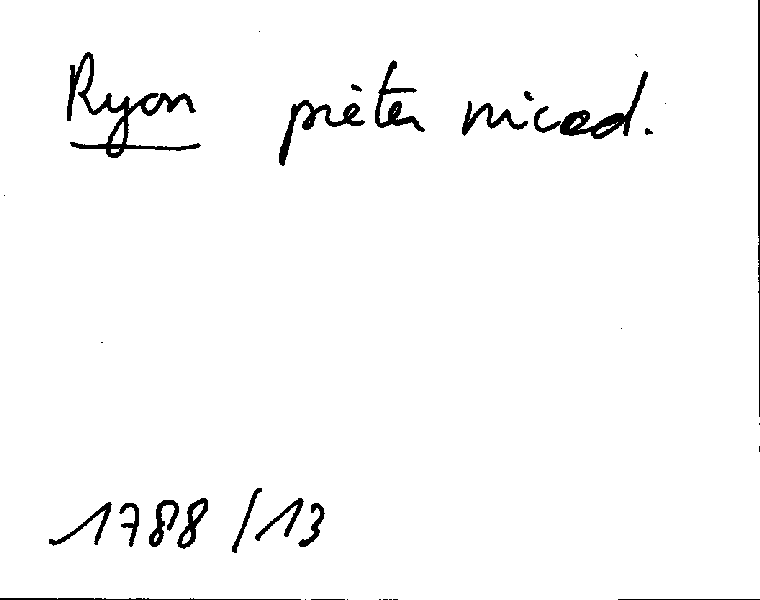 Ryon pièter nicod.
1788/13